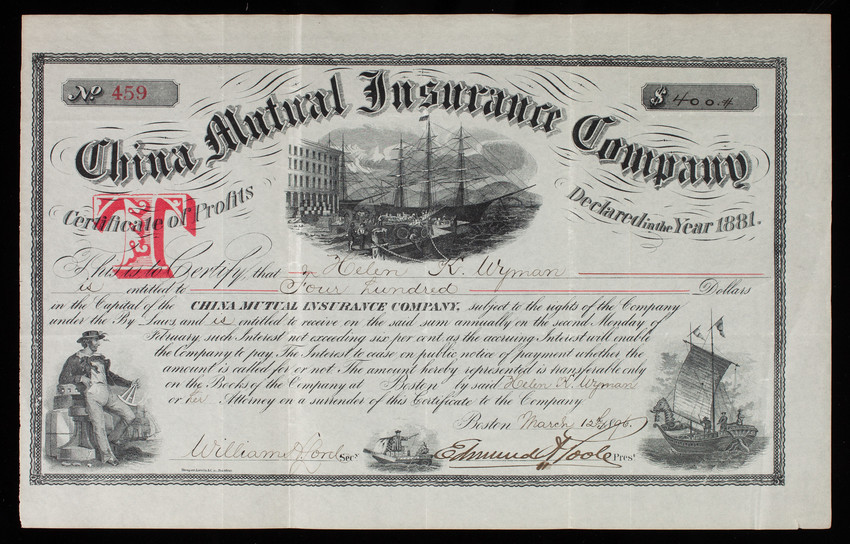 No. 459
$ 400.
China Mutual Insurance Company
T
Certificate of Profits
Declared in the Year 1881.
This is to Certify, that Helen K. Wyman
is entitled to Four hundred Dollars
in the Capital of the CHINA MUTUAL INSURANCE COMPANY, subject to the rights of the Company
under the By Laws, and is entitled to receive on the said sum annually on the second Monday of
February such Interest not exceeding six per cent as the accruing Interest will enable
the Company to pay. The Interest to cease on public notice of payment whether the
amount is called for or not. The amount hereby represented is transferable only
on the Books of the Company at Boston by said Helen K. Wyman
or her Attorney on a surrender of this Certificate to the Company.
Boston March 12th 1896.
William H. Lord Secy.
Edmund A. Poole Prest.